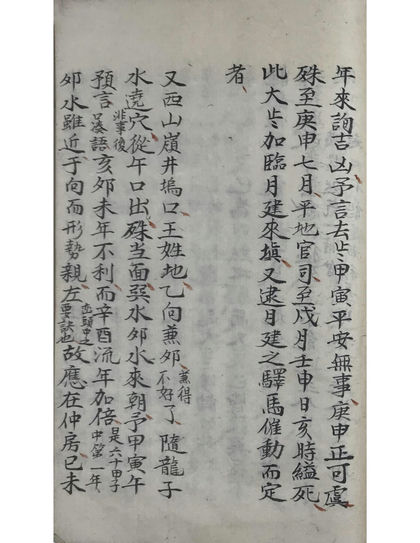 年來詢吉凶予言去歲甲寅平安無事庚申正可虞
殊至庚申七月平地官司至戊月壬申日亥時縊死
此大歲加臨月建來塡又逮月建之驛馬催動而定
者
又西山嶺井塢口王姓地乙向兼卯兼得不好了隨龍子
水遶穴從午口出殊当面巽水卯水來朝予甲寅午
預言非事後莫語亥卯未年不利而辛酉流年加倍是六十甲子中第一年
卯水雖近于向而形勢親左巒頭中之要訣也故應在仲房已未